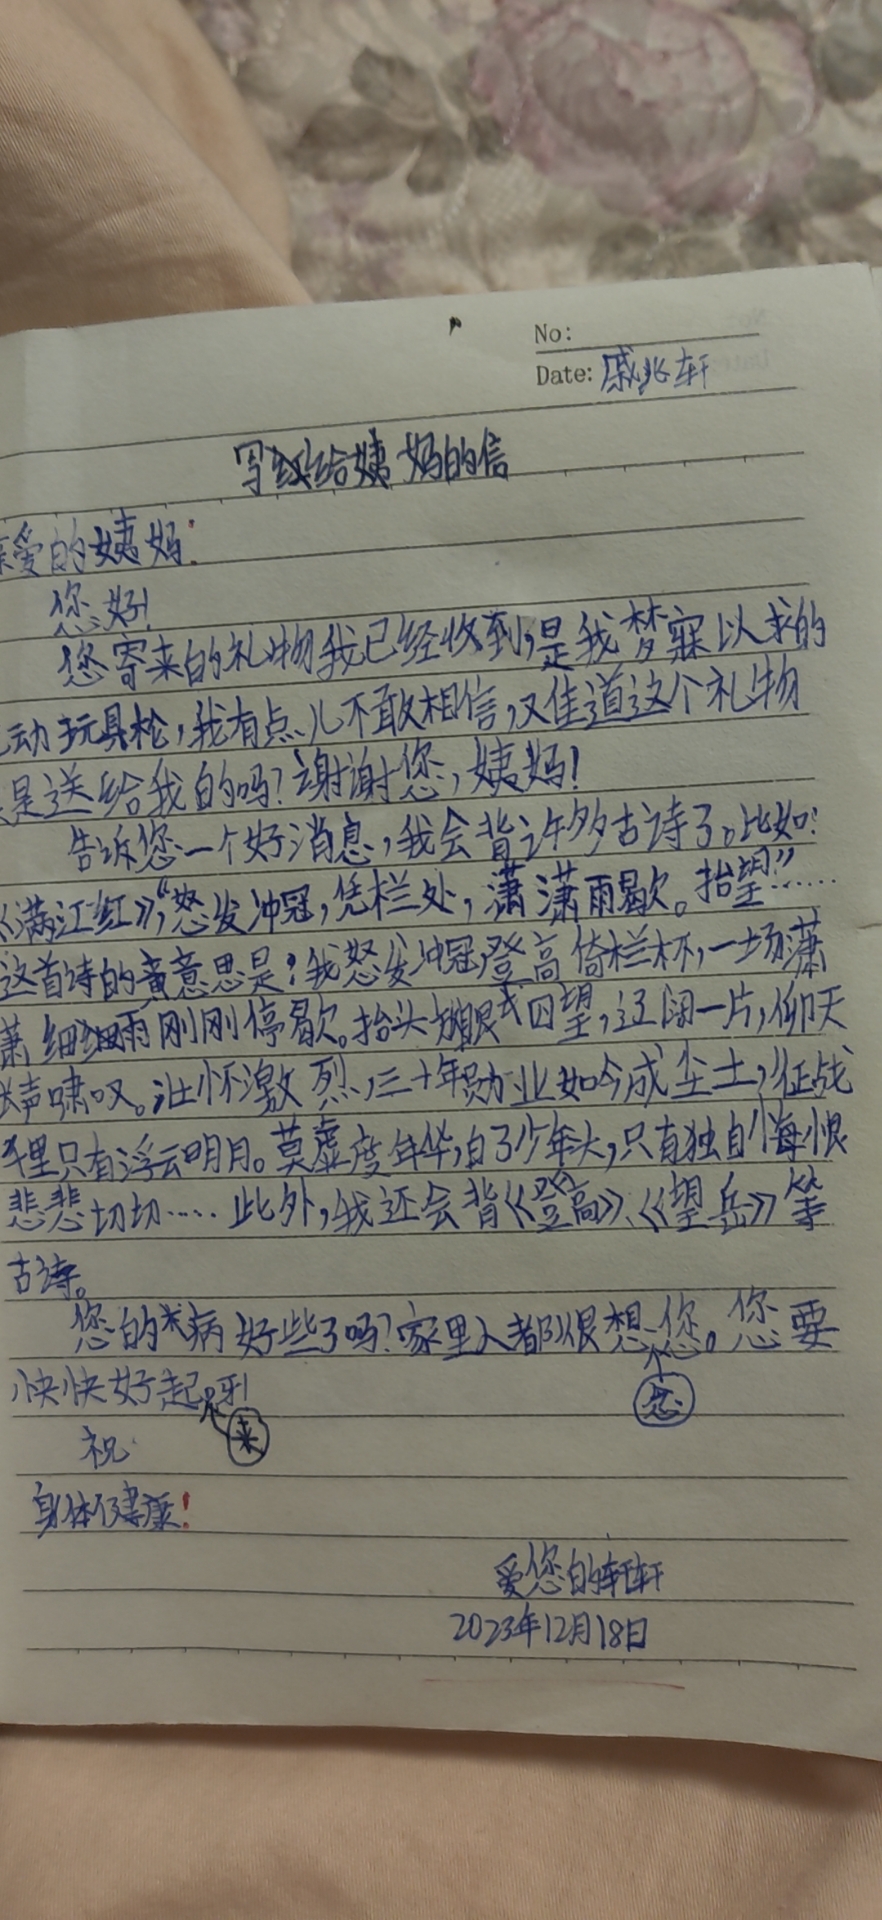 No:
Date: 戚兆轩
写给姨妈的信
亲爱的姨妈:
您好!
您寄来的礼物我已经收到,是我梦寐以求的
动玩具枪,我有点儿不敢相信,难道这个礼物
是送给我的吗?谢谢您,姨妈!
告诉您一个好消息,我会背许多古诗了。比如:
《满江红》,“怒发冲冠,凭栏处,潇潇雨歇。抬望”……
这首诗的意思是:我怒发冲冠,登高倚栏杆,一场潇
萧细细雨刚刚停歇。抬头放眼四望,辽阔一片,仰天
长声啸叹。壮怀激烈,三十年勋业如今成尘土,征战
千里只有浮云明月。莫虚度年华,白了少年头,只有独自悔恨
悲悲切切…… 此外,我还会背《登高》、《望岳》等
古诗。
您的病好些了吗?家里人都很想念您。您要
快快好起来呀!
祝
身体健康!
爱您的轩轩
2023年12月18日